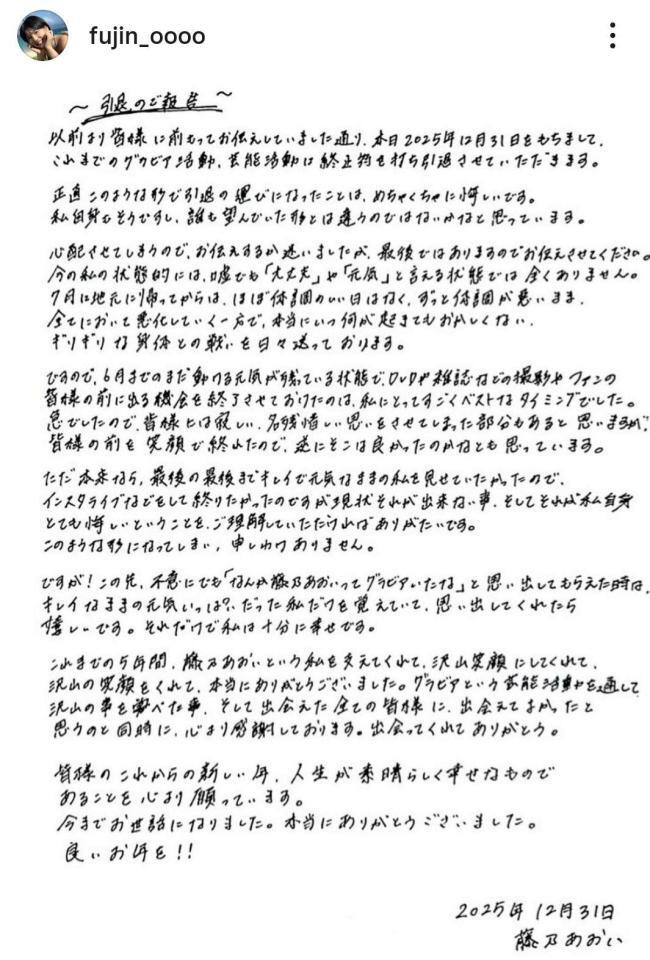 fujin_oooo
〜引退のご報告〜
以前より皆様に前もってお伝えしていました通り、本日2025年12月31日をもちまして、
これまでのグラビア活動、芸能活動に終止符を打ち引退させていただきます。
正直このような形で引退の運びになったことは、めちゃくちゃに悔しいです。
私自身もそうですし、誰も望んでいた形とは違うのではないかなと思っています。
心配させてしまうので、お伝えするか迷いましたが、最後ではありますのでお伝えさせてください。
今の私の状態的には、嘘でも「大丈夫」や「元気」と言える状態では全くありません。
7月に地元に帰ってからは、ほぼ体調のいい日はなく、ずっと体調が悪いまま、
全てにおいて悪化していく一方で、本当にいつ何が起きてもおかしくない、
ギリギリな身体との戦いを日々送っております。
ですので、6月までのまだ動ける元気が残っている状態で、DVDや雑誌などの撮影やファンの
皆様の前に出る機会を終了させておけたのは、私にとってすごくベストなタイミングでした。
急でしたので、皆様には寂しい、名残惜しい思いをさせてしまった部分もあると思いますが、
皆様の前を笑顔で終れたので、逆にそこは良かったのかなとも思っています。
ただ本来なら、最後の最後までキレイで元気なままの私を見せていたかったので、
インスタライブなどをして終りたかったのですが現状それが出来ない事、そしてそれが私自身
とても悔しいということを、ご理解していただければありがたいです。
このような形になってしまい、申しわけありません。
ですが！この先、不意にでも「なんか藤乃あおいってグラビアいたな」と思い出してもらえた時は、
キレイなままの元気いっぱい、だった私だけを覚えていて、思い出してくれたら
嬉しいです。それだけで私は十分に幸せです。
これまでの5年間、藤乃あおいという私を支えてくれて、沢山笑顔にしてくれて、
沢山の笑顔をくれて、本当にありがとうございました。グラビアという芸能活動を通して
沢山の事を学べた事、そして出会えた全ての皆様に、出会えてよかったと
思うのと同時に、心より感謝しております。出会ってくれてありがとう。
皆様のこれからの新しい年、人生が素晴らしく幸せなもので
あることを心より願っています。
今までお世話になりました。本当にありがとうございました。
良いお年を！！
2025年12月31日
藤乃あおい